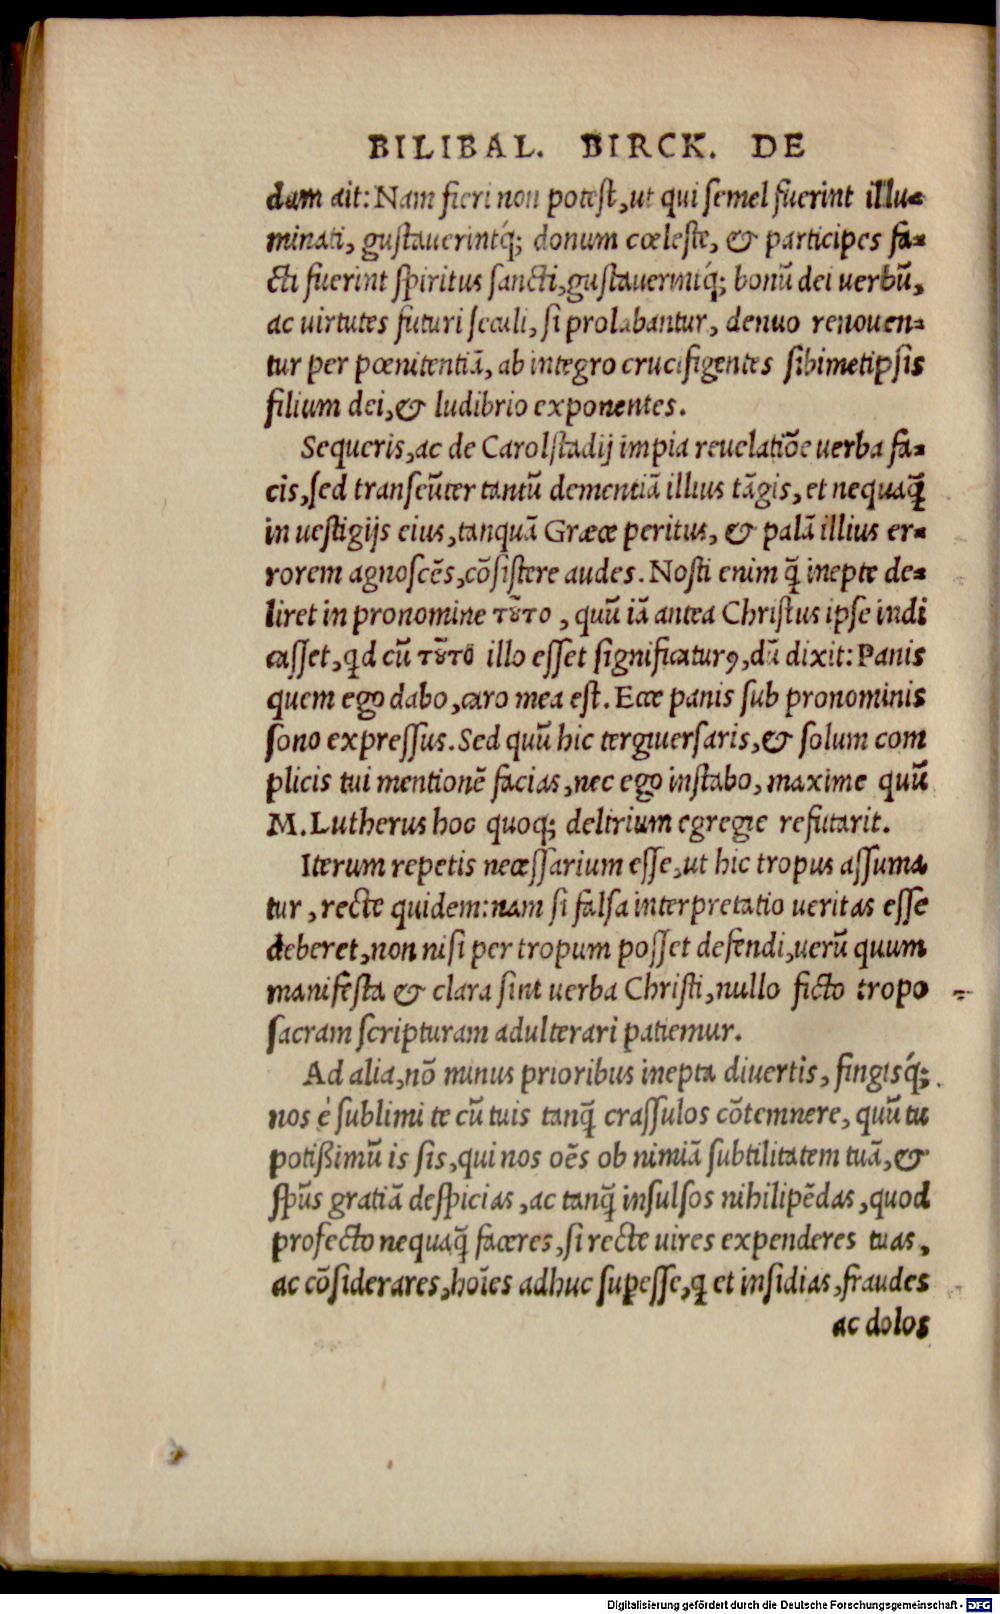 BILIBAL. BIRCK. DE
dam ait: Nam fieri non potest, ut qui semel fuerint illu-
minati, gustauerintq́; donum cœleste, & participes fa-
cti fuerint spiritus sancti, gustauerintq́; bonū dei uerbū,
ac uirtutes futuri seculi, si prolabantur, denuo renouen-
tur per pœnitentiā, ab integro crucifigentes sibimetipsis
filium dei, & ludibrio exponentes.
Sequeris, ac de Carolstadij impia reuelatiõe uerba fa-
cis, sed transeūter tantū dementiā illius tāgis, et nequaq̄
in uestigijs eius, tanquā Græce peritus, & palā illius er-
rorem agnoscēs, cōsistere audes. Nosti enim q̄ inepte de-
liret in pronomine τȣ̃το, quū iā antea Christus ipse indi
casset, qd cū τȣ̃το illo esset significaturꝰ, dū dixit: Panis
quem ego dabo, caro mea est. Ecce panis sub pronominis
sono expressus. Sed quū hic tergiuersaris, & solum com
plicis tui mentionē facias, nec ego instabo, maxime quū
M. Lutherus hoc quoq; delirium egregie refutarit.
Iterum repetis necessarium esse, ut hic tropus assuma
tur, recte quidem: nam si falsa interpretatio ueritas esse
deberet, non nisi per tropum posset defendi, uerū quum
manifesta & clara sint uerba Christi, nullo ficto tropo
sacram scripturam adulterari patiemur.
Ad alia, nō minus prioribus inepta diuertis, fingisq́;
nos è sublimi te cū tuis tanq̄ crassulos cōtemnere, quū tu
potißimū is sis, qui nos oēs ob nimiā subtilitatem tuā, &
spūs gratiā despicias, ac tanq̄ insulsos nihilipēdas, quod
profecto nequaq̄ faceres, si recte uires expenderes tuas,
ac cōsiderares, hoīes adhuc supesse, q et insidias, fraudes
ac dolos
Digitalisierung gefördert durch die Deutsche Forschungsgemeinschaft - DFG